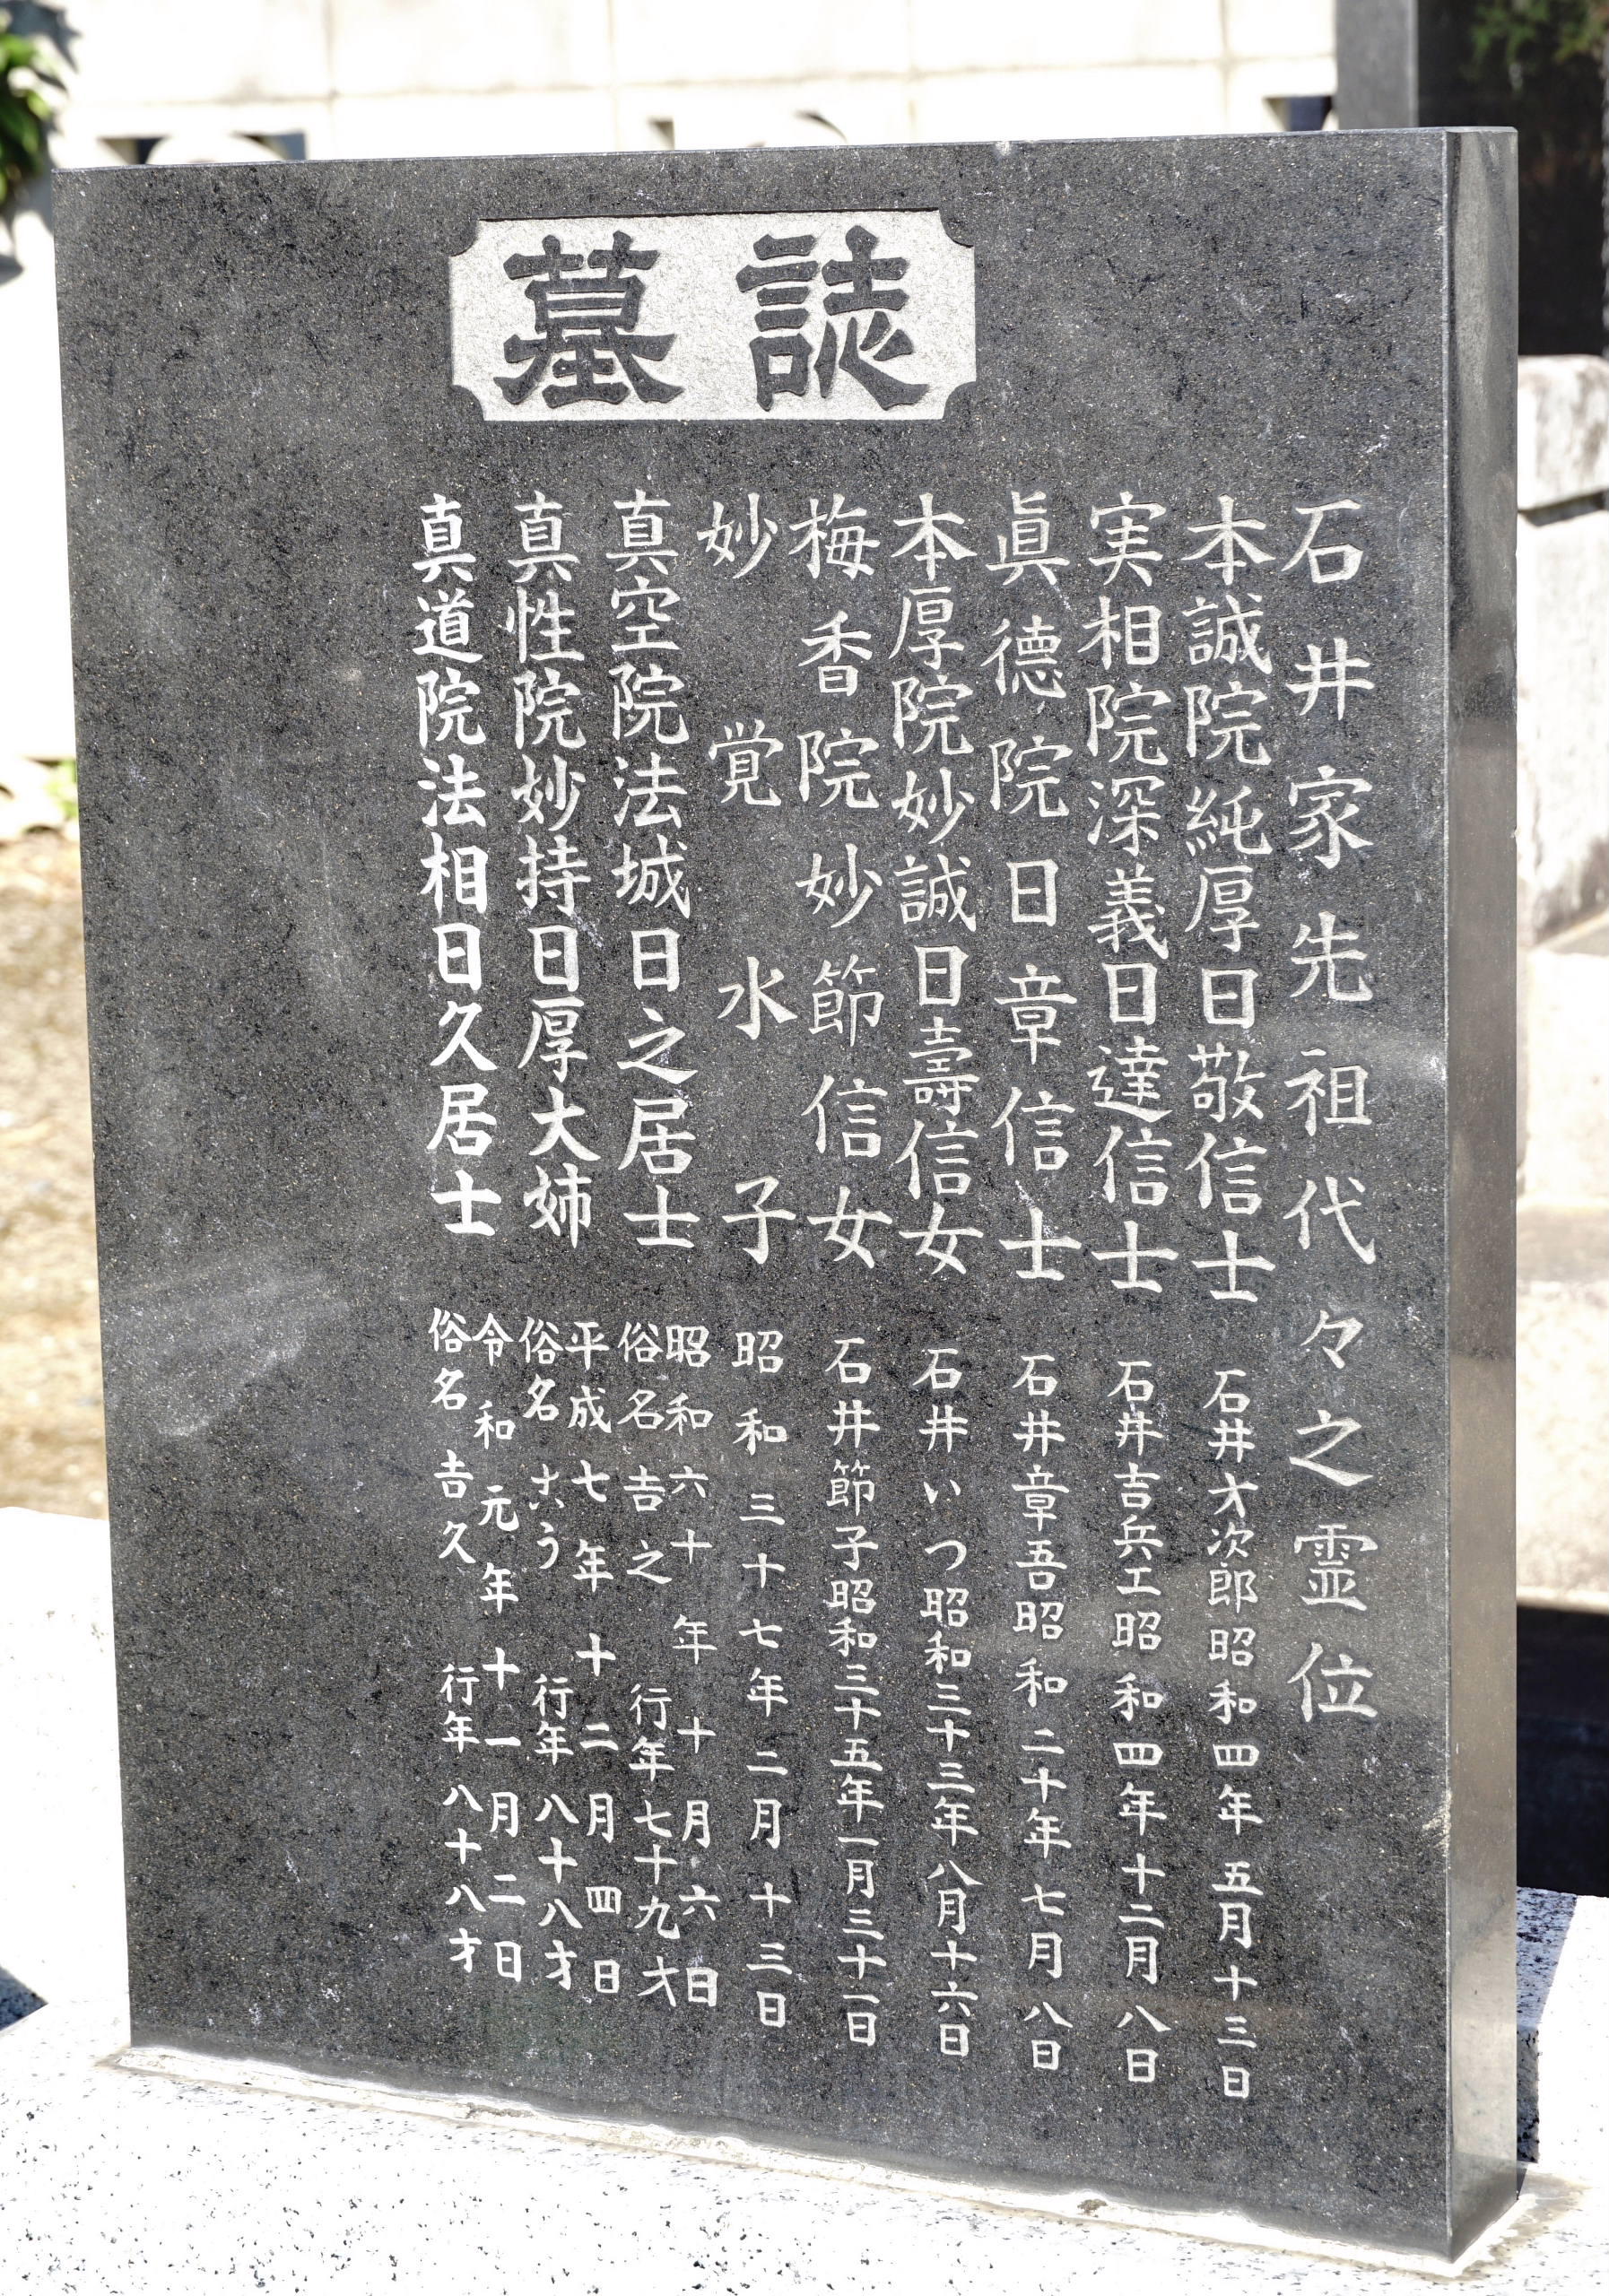 墓誌
石井家先祖代々之霊位
本誠院純厚日敬信士 石井才次郎昭和四年五月十三日
実相院深義日達信士 石井吉兵工昭和四年十二月八日
眞德院日章信士 石井章吾昭和二十年七月八日
本厚院妙誠日壽信女 石井いつ昭和三十三年八月十六日
梅香院妙節信女 石井節子昭和三十五年一月三十一日
妙覚水子 昭和三十七年二月十三日
真空院法城日之居士 昭和六十年十月六日
俗名吉之 行年七十九才
真性院妙持日厚大姉 平成七年十二月四日
俗名こう 行年八十八才
真道院法相日久居士 令和元年十一月二日
俗名吉久 行年八十八才